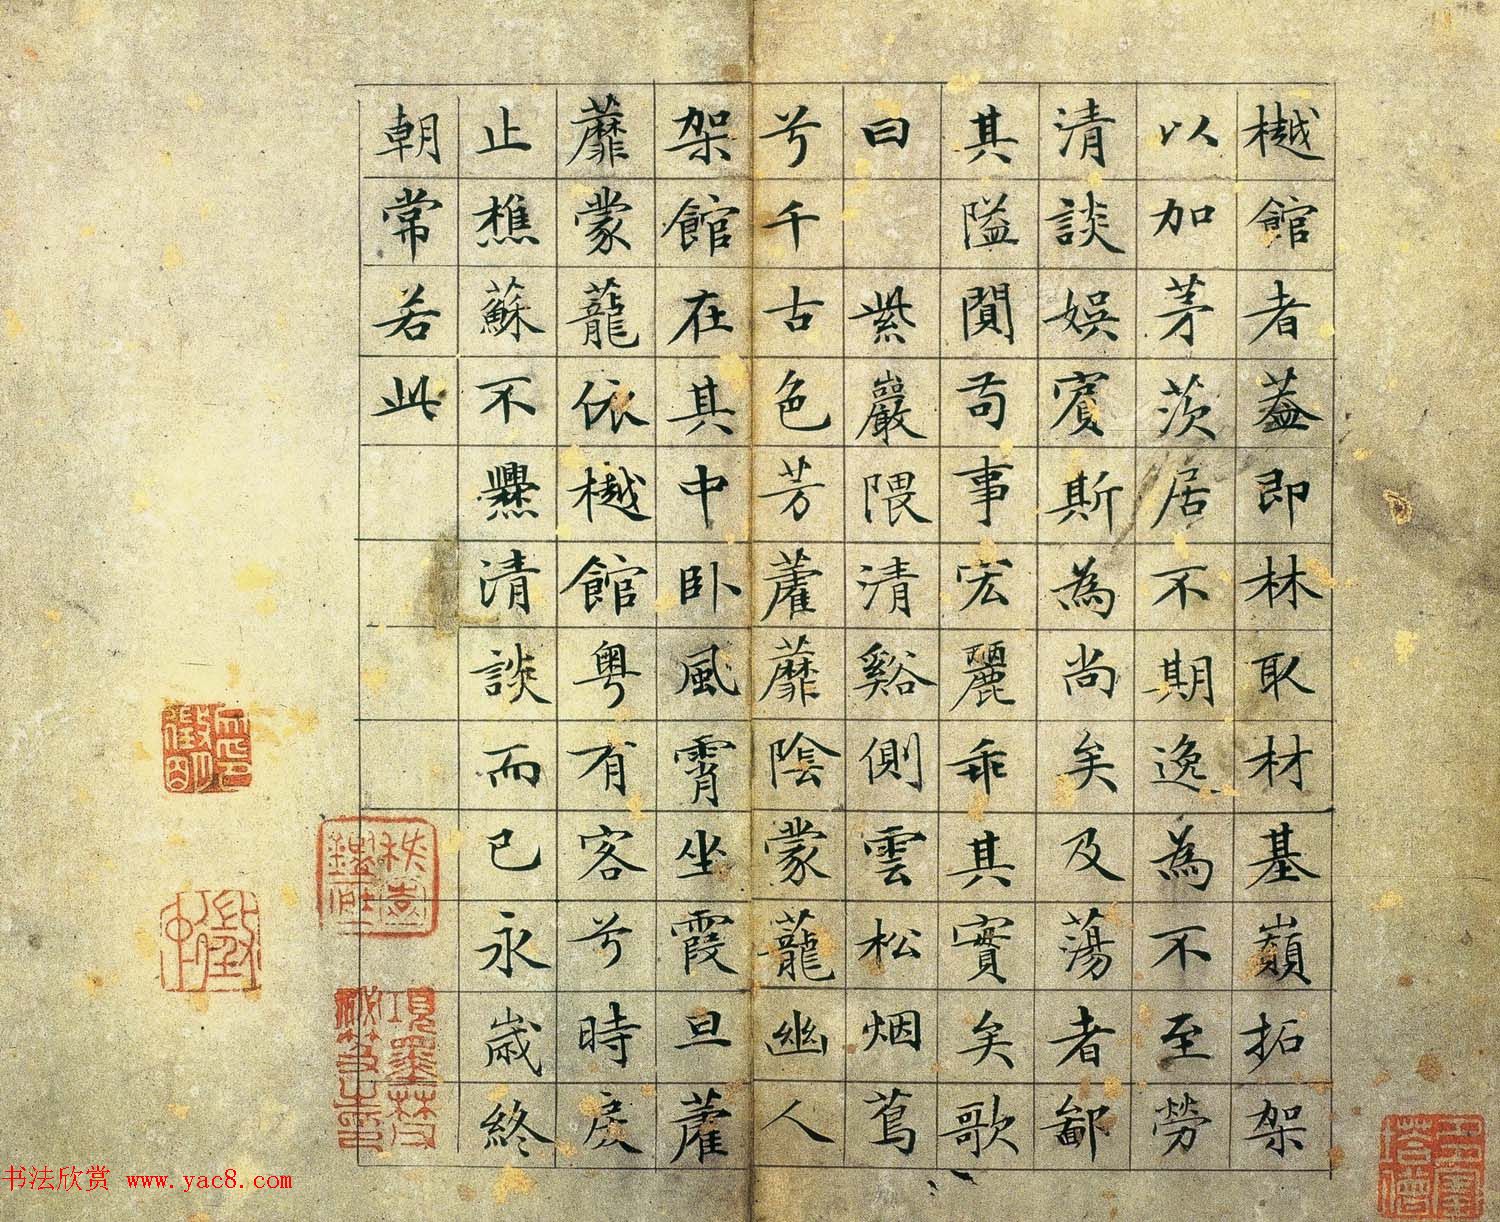 樾館者蓋即林取材基巔拓架
以加茅茨居不期逸為不至勞
清談娛賓斯為尚矣及蕩者鄙
其隘閴苟事宏麗乖其實矣歌
曰 紫巖隈清谿側雲松烟蔦
兮千古色芳藿蘼陰蒙蘢幽人
架館在其中卧風霄坐霞旦藿
蘼蒙蘢依樾館粵有客兮時戾
止樵蘇不爨清談而已永歲終
朝常若此
項墨林父祕笈之印
书法欣赏 www.yac8.com